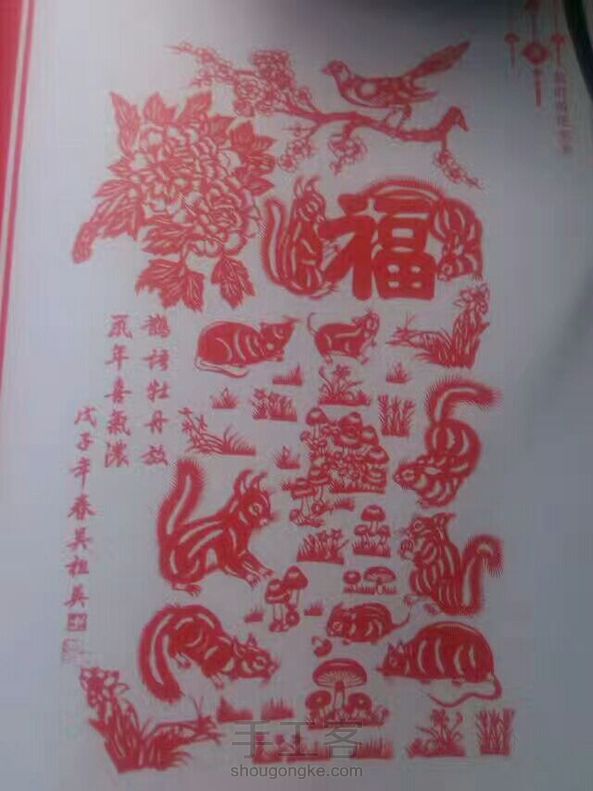 福
鵲語牡丹放
鼠年喜氣濃
戊子年春吳祖英
手工客
shougongke.com